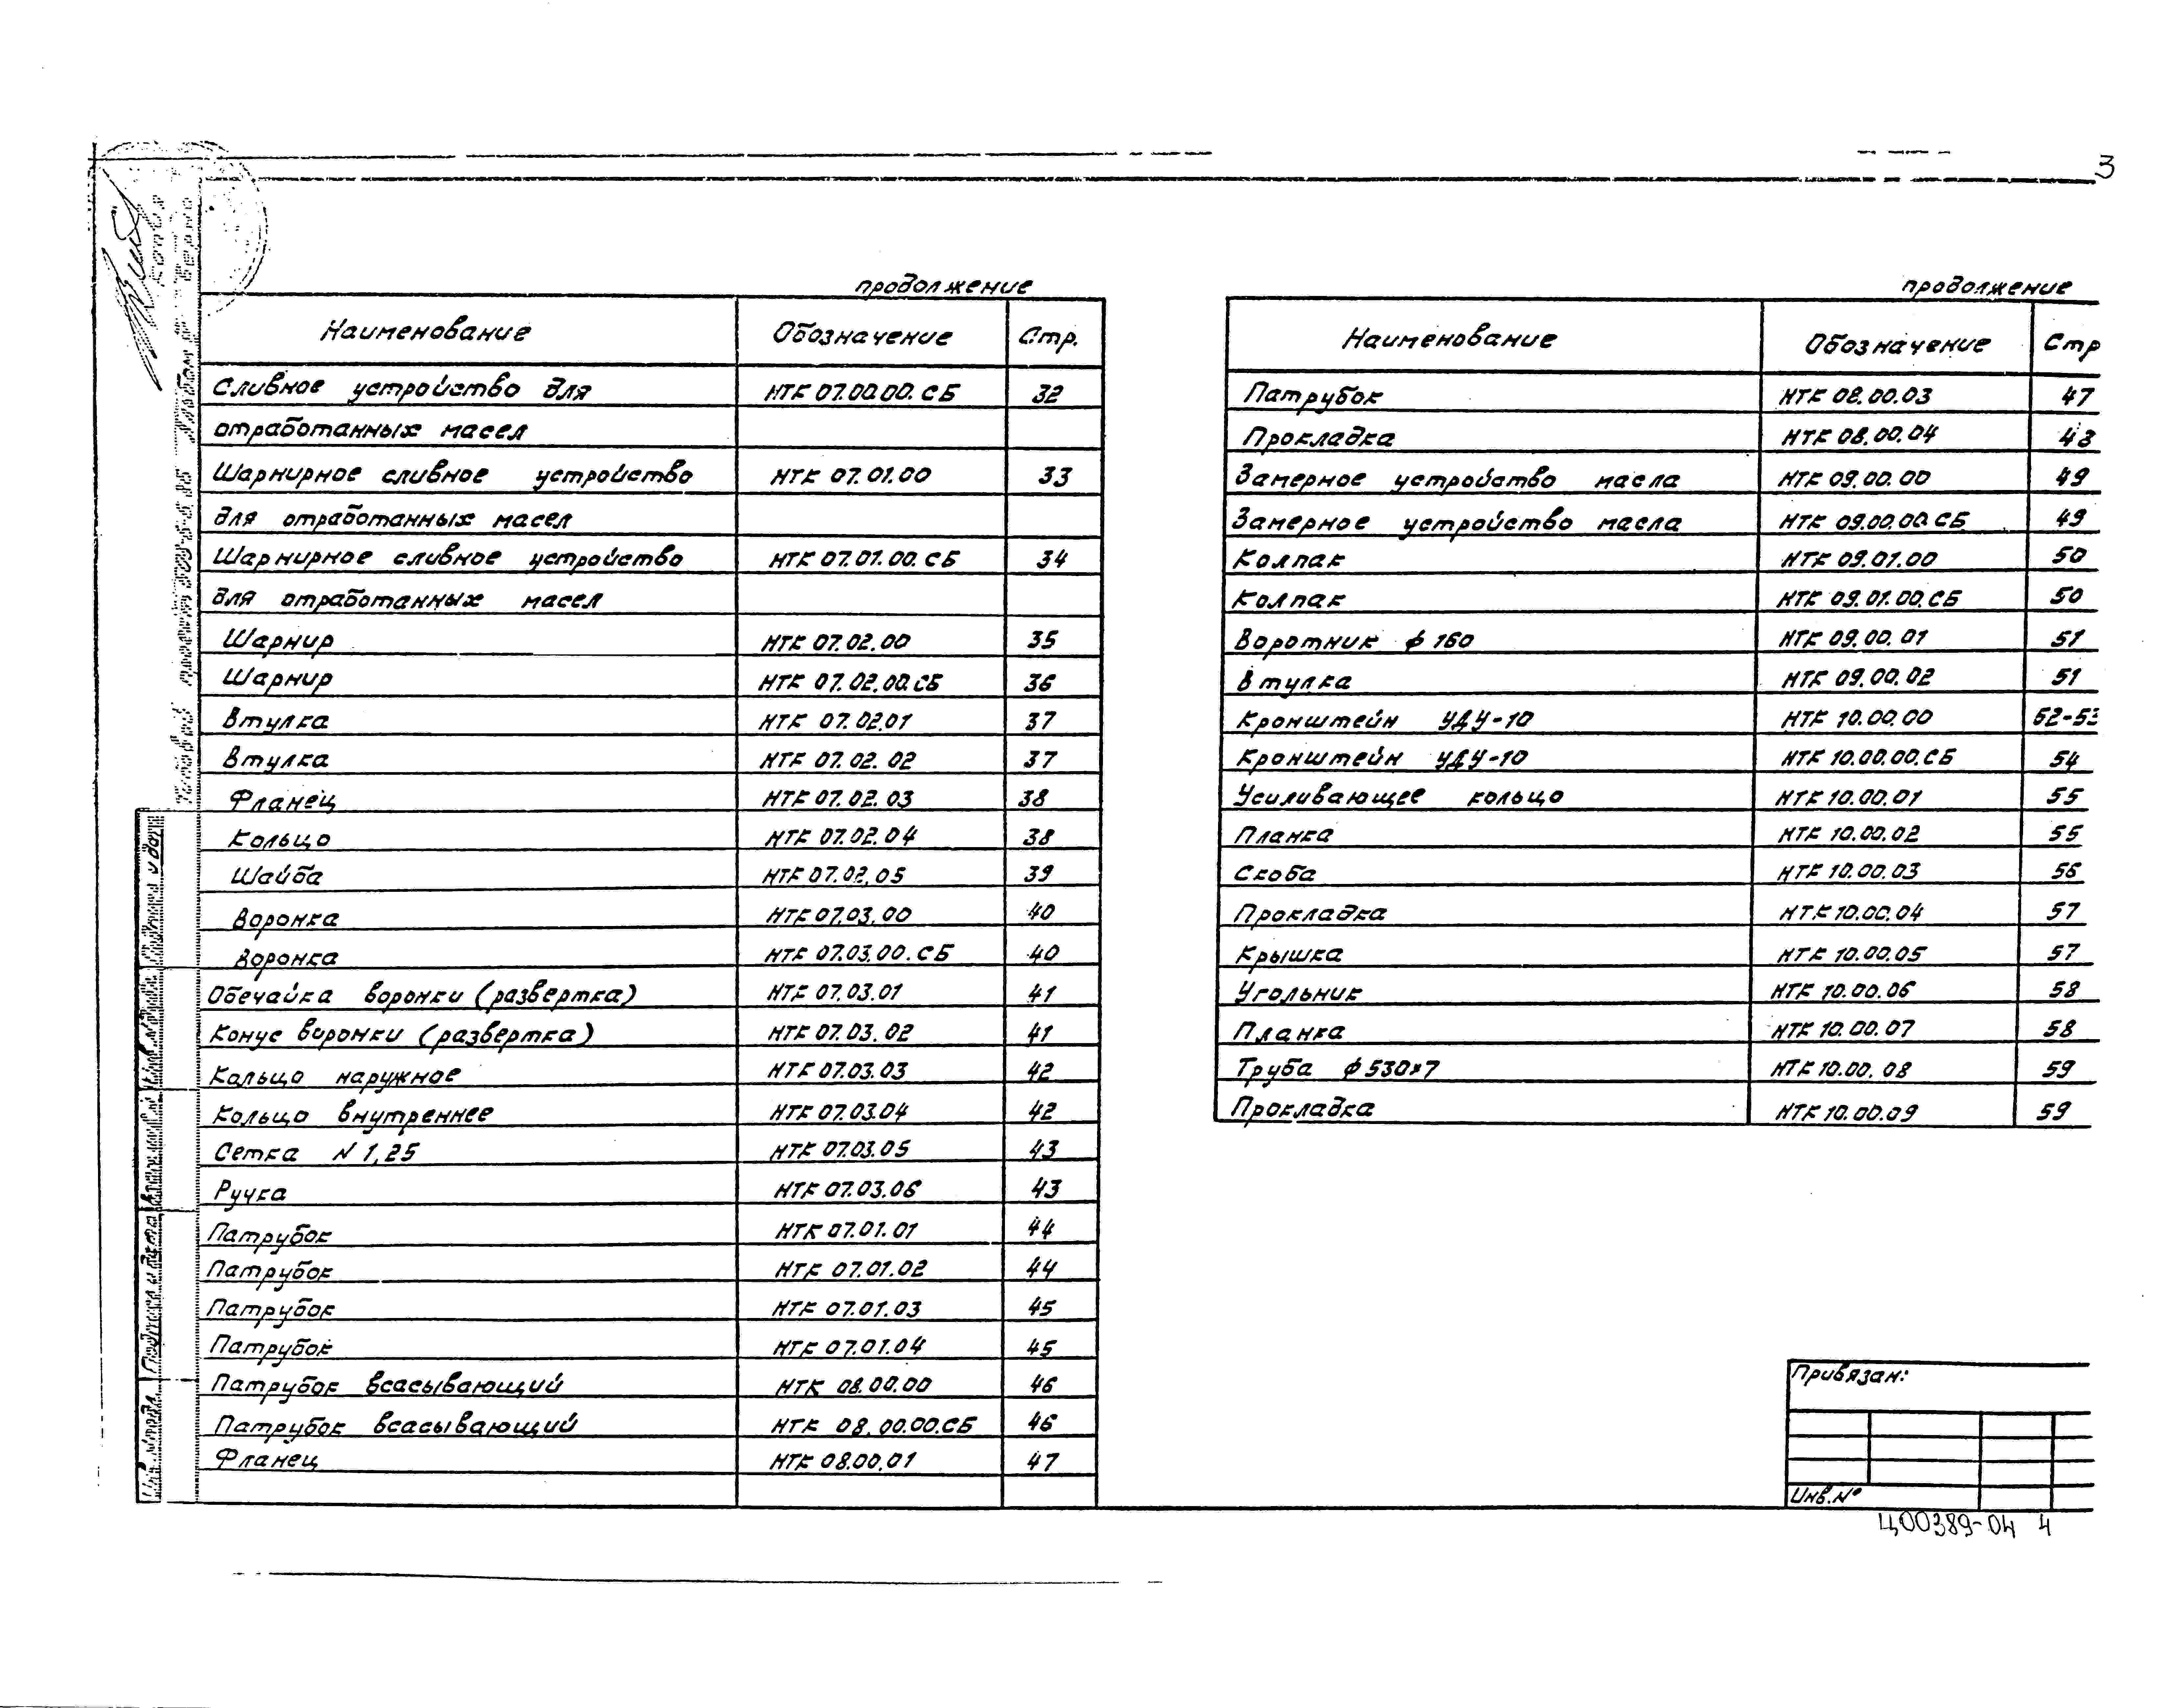 3
продолжение
Наименование Обозначение Стр.
Сливное устройство для НТК 07.00.00.СБ 32
отработанных масел
Шарнирное сливное устройство НТК 07.01.00 33
для отработанных масел
Шарнирное сливное устройство НТК 07.01.00.СБ 34
для отработанных масел
Шарнир НТК 07.02.00 35
Шарнир НТК 07.02.00.СБ 36
Втулка НТК 07.02.01 37
Втулка НТК 07.02.02 37
Фланец НТК 07.02.03 38
Кольцо НТК 07.02.04 38
Шайба НТК 07.02.05 39
Воронка НТК 07.03.00 40
Воронка НТК 07.03.00.СБ 40
Обечайка воронки (развертка) НТК 07.03.01 41
Конус воронки (развертка) НТК 07.03.02 41
Кольцо наружное НТК 07.03.03 42
Кольцо внутреннее НТК 07.03.04 42
Сетка N 1,25 НТК 07.03.05 43
Ручка НТК 07.03.06 43
Патрубок НТК 07.01.01 44
Патрубок НТК 07.01.02 44
Патрубок НТК 07.01.03 45
Патрубок НТК 07.01.04 45
Патрубок всасывающий НТК 08.00.00 46
Патрубок всасывающий НТК 08.00.00.СБ 46
Фланец НТК 08.00.01 47
продолжение
Наименование Обозначение Стр
Патрубок НТК 08.00.03 47
Прокладка НТК 08.00.04 48
Замерное устройство масла НТК 09.00.00 49
Замерное устройство масла НТК 09.00.00.СБ 49
Колпак НТК 09.01.00 50
Колпак НТК 09.01.00.СБ 50
Воротник ϕ 160 НТК 09.00.01 51
Втулка НТК 09.00.02 51
Кронштейн УДУ-10 НТК 10.00.00 52-53
Кронштейн УДУ-10 НТК 10.00.00.СБ 54
Усиливающее кольцо НТК 10.00.01 55
Планка НТК 10.00.02 55
Скоба НТК 10.00.03 56
Прокладка НТК 10.00.04 57
Крышка НТК 10.00.05 57
Угольник НТК 10.00.06 58
Планка НТК 10.00.07 58
Труба ϕ 530×7 НТК 10.00.08 59
Прокладка НТК 10.00.09 59
Привязан:
Инв.N°
Ц00389-04 4